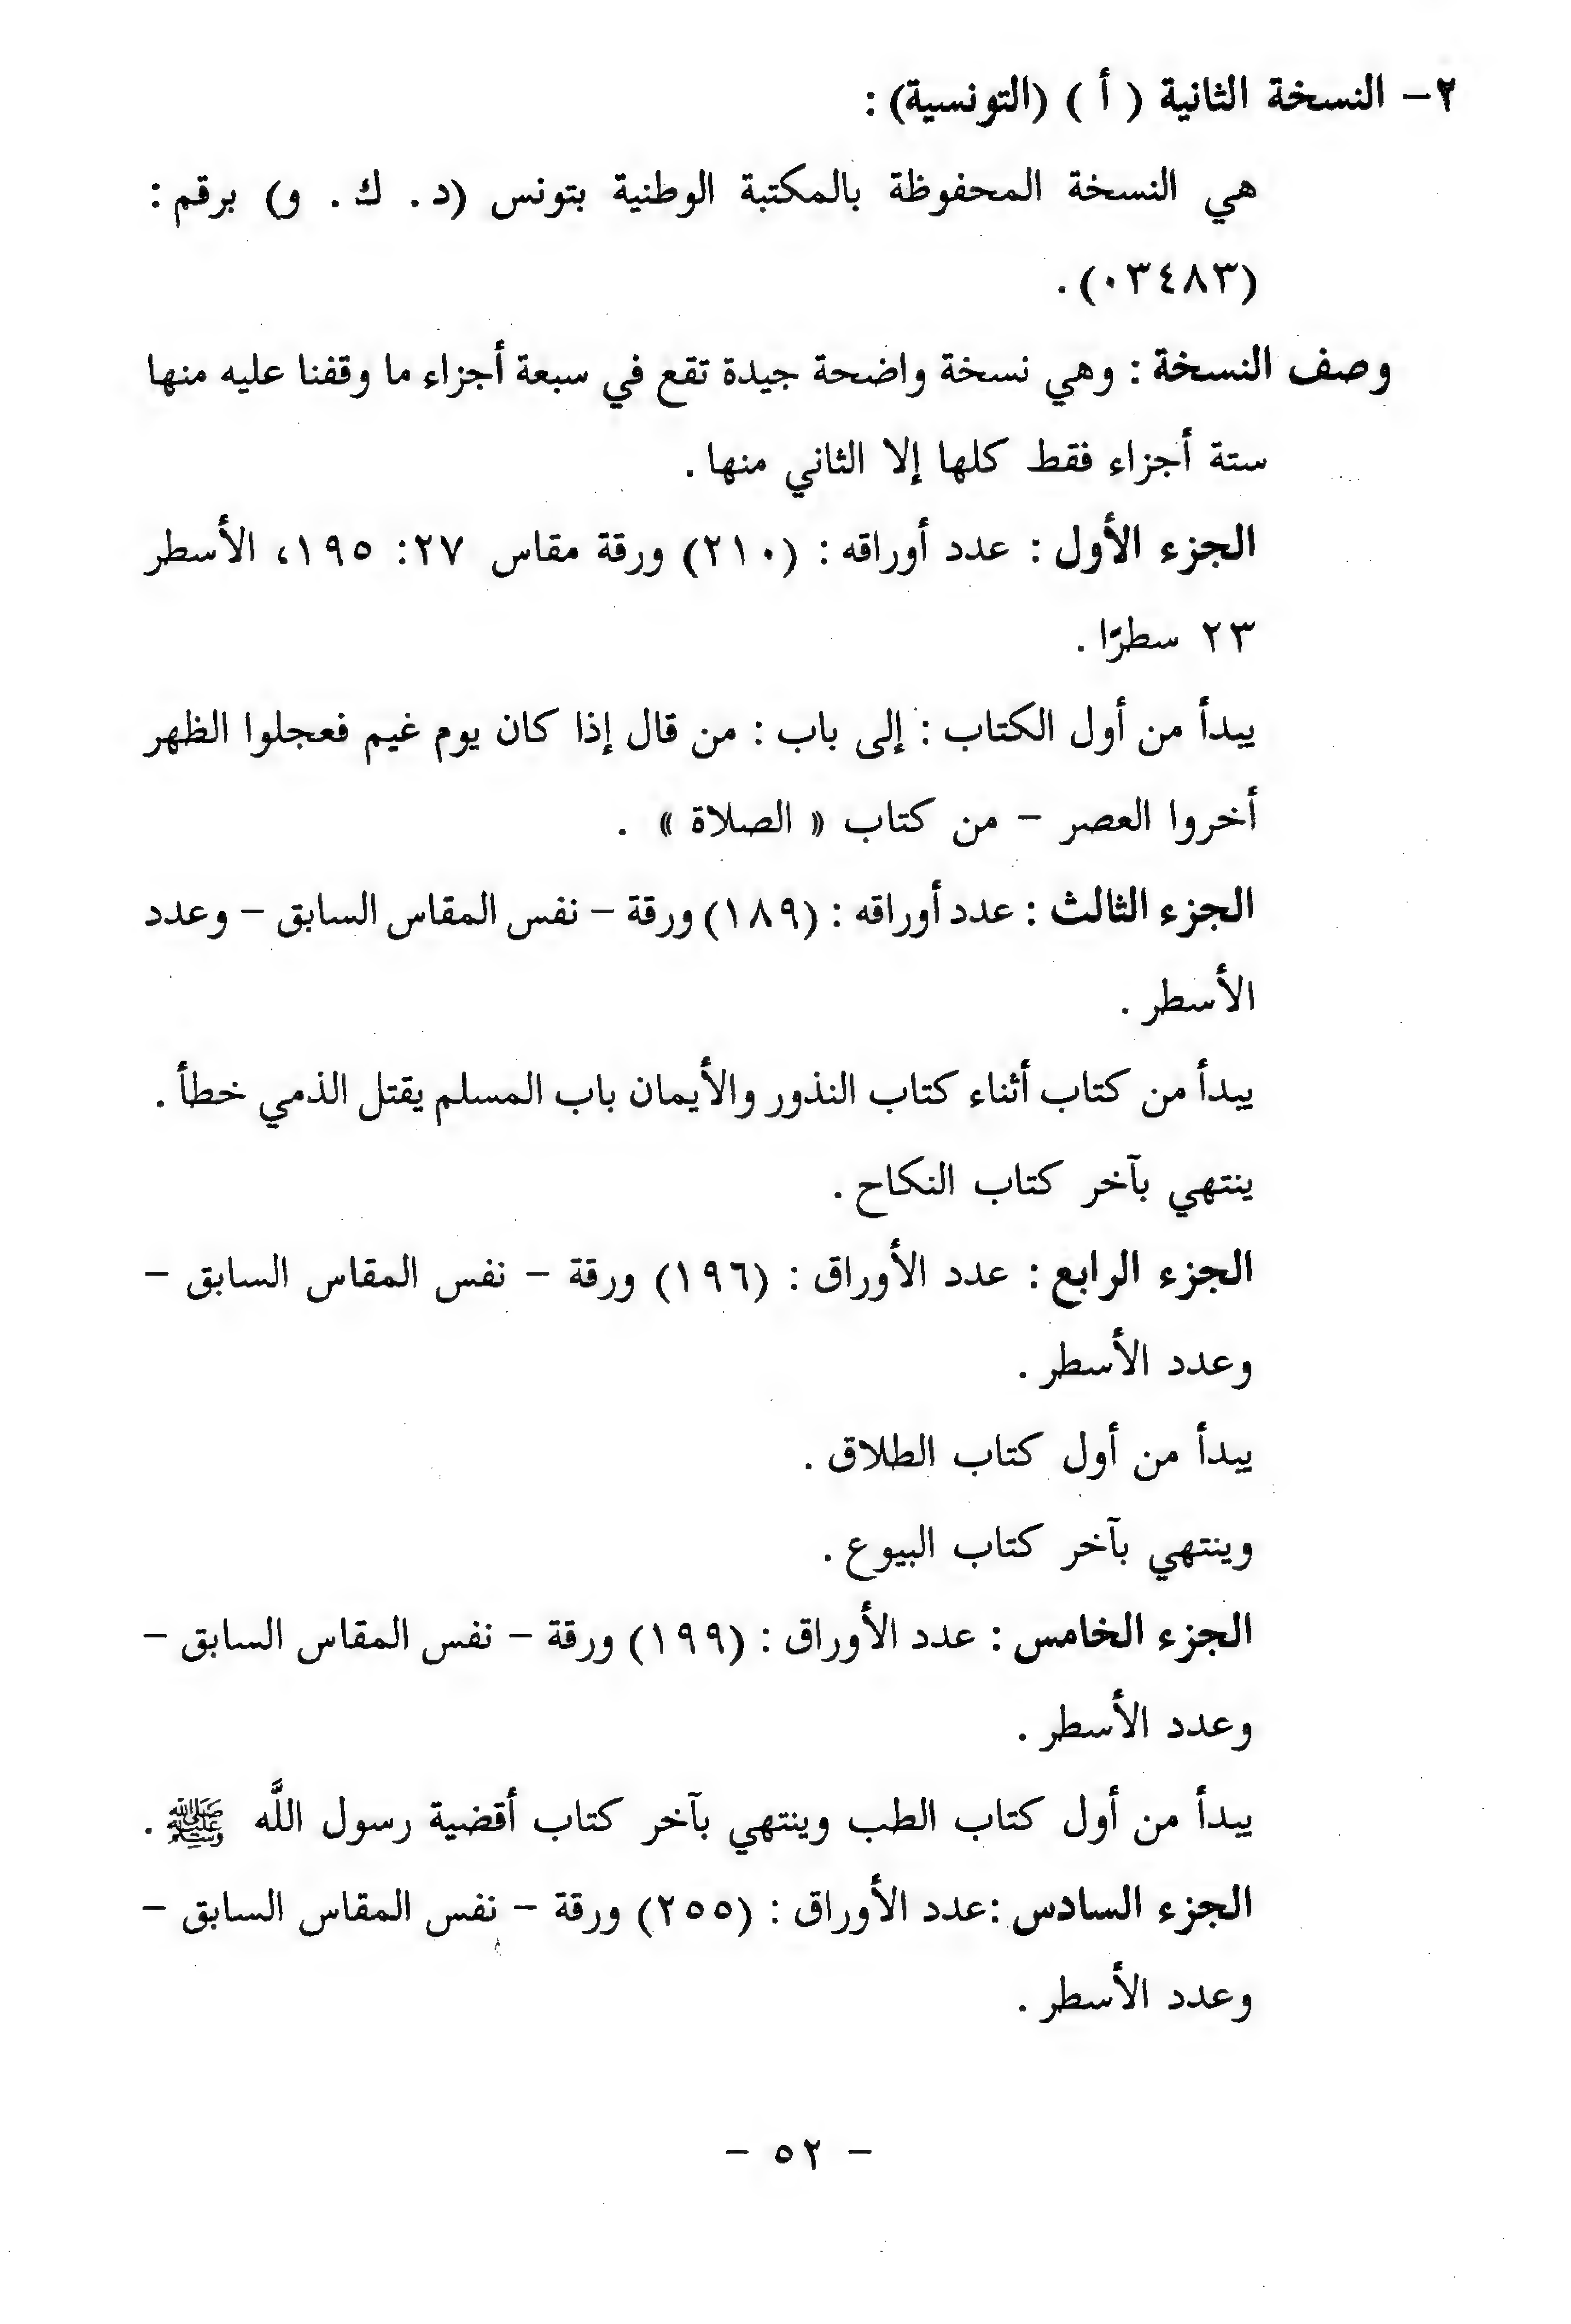 ٢- النسخة الثانية ( أ ) (التونسية):
هي النسخة المحفوظة بالمكتبة الوطنية بتونس (د. ك. و) برقم:
(٠٣٤٨٣).
وصف النسخة: وهي نسخة واضحة جيدة تقع في سبعة أجزاء ما وقفنا عليه منها
ستة أجزاء فقط كلها إلا الثاني منها.
الجزء الأول: عدد أوراقه: (٢١٠) ورقة مقاس ٢٧: ١٩٥، الأسطر
٢٣ سطرًا.
يبدأ من أول الكتاب: إلى باب: من قال إذا كان يوم غيم فعجلوا الظهر
أخروا العصر - من كتاب «الصلاة».
الجزء الثالث: عدد أوراقه: (١٨٩) ورقة - نفس المقاس السابق - وعدد
الأسطر.
يبدأ من كتاب أثناء كتاب النذور والأيمان باب المسلم يقتل الذمي خطأ.
ينتهي بآخر كتاب النكاح.
الجزء الرابع: عدد الأوراق: (١٩٦) ورقة - نفس المقاس السابق -
وعدد الأسطر.
يبدأ من أول كتاب الطلاق.
وينتهي بآخر كتاب البيوع.
الجزء الخامس: عدد الأوراق: (١٩٩) ورقة - نفس المقاس السابق -
وعدد الأسطر.
يبدأ من أول كتاب الطب وينتهي بآخر كتاب أقضية رسول اللَّه ﷺ.
الجزء السادس: عدد الأوراق: (٢٥٥) ورقة - نفس المقاس السابق -
وعدد الأسطر.
- ٥٢ -